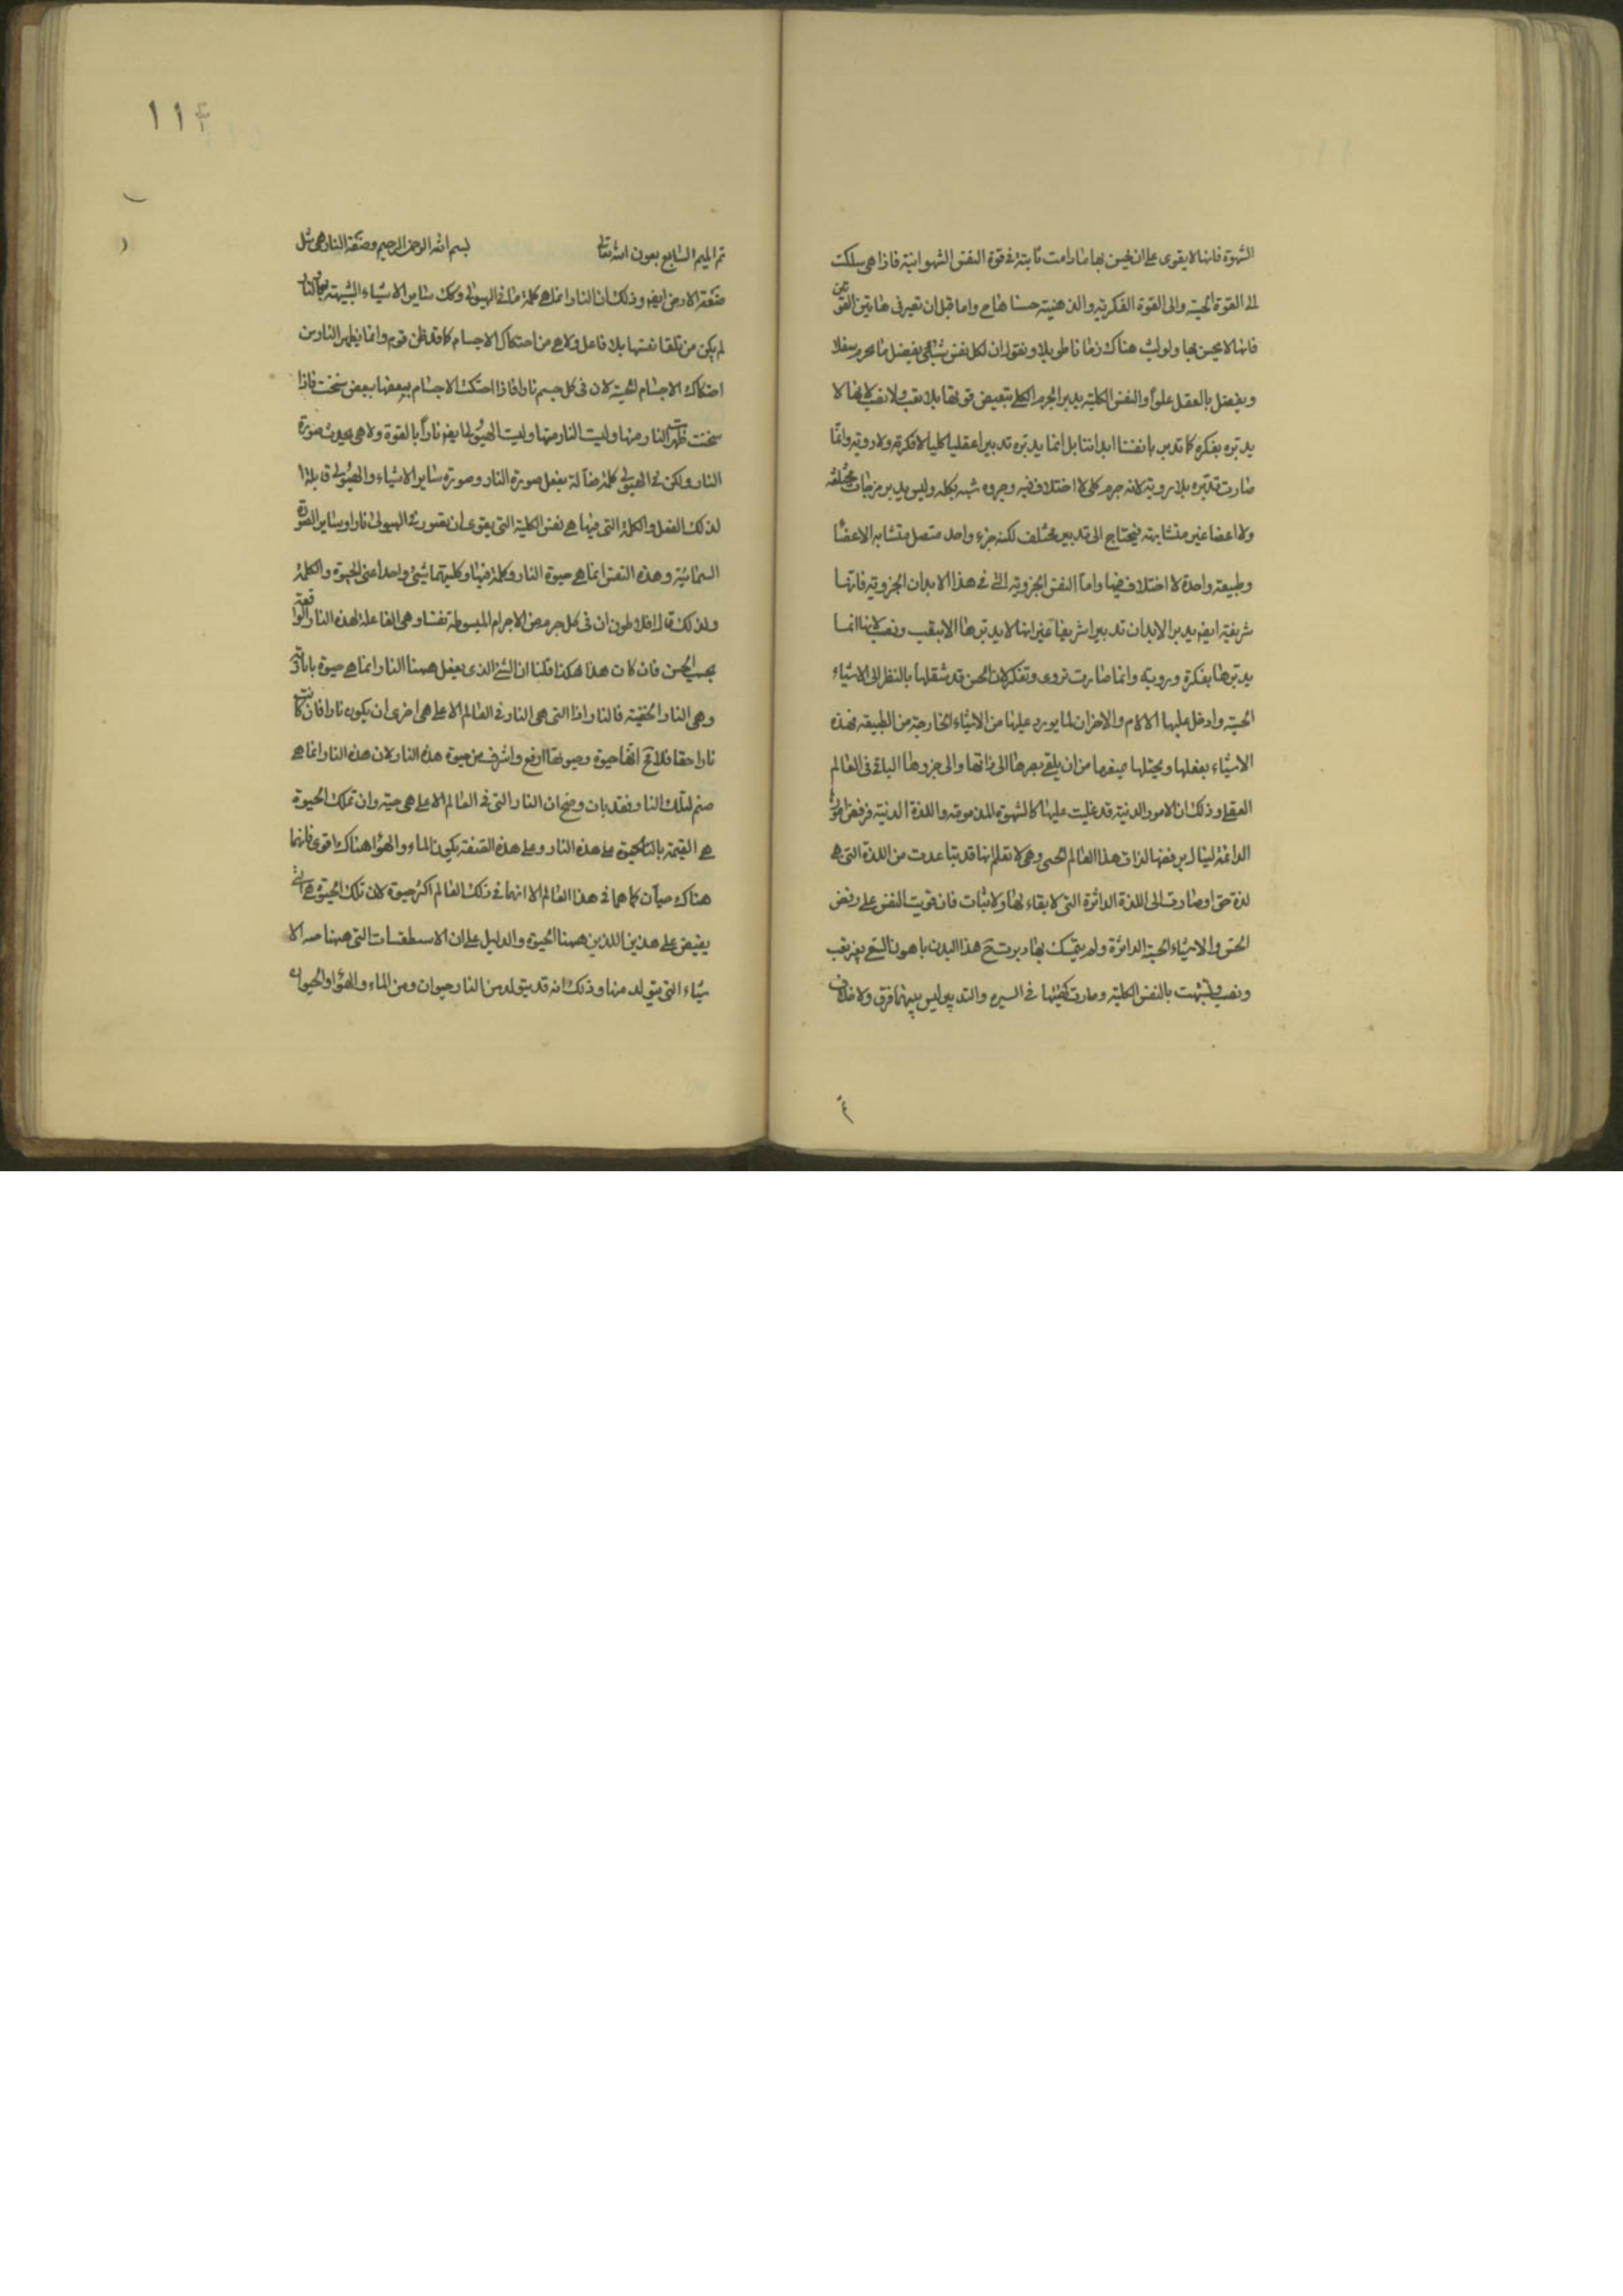 الشهوة فانها لا يقوى على ان نحس بها ما دامت ثابتة فى قوة النفس الشهوانية فاذا هى سلكت
الى القوة الحسية والى القوة الفكرية والذهنية حسسناها واما قبل ان تصير فى هاتين القوتين
فانا لا نحس بها ولو لبثت هناك زمانا طويلا ونقول ان لكل نفس شيأ يتصل بالجرم سفلا
ويتصل بالعقل علوا والنفس الكلية يدبر الجرم الكلى ببعض قوتها بلا تعب ولا نصب لانها لا
يدبره بفكرة كما تدبر انفسنا ابداننا بل انما يدبره تدبيرا عقليا كليا لا فكرة ولا روية وانما
صارت تدبره بلا روية لانه جرم كلى لا اختلاف فيه وجزوه شبه بكله وليس يدبر مزجات مختلفة
ولا اعضا غير متشابهة فيحتاج الى تدبير مختلف لكنه جزء واحد متصل متشابه الاعضا
وطبيعة واحدة لا اختلاف فيها واما النفس الجزوية التى فى هذا الابدان الجزوية فانها
شريفة ايضا يدبر الابدان تدبيرا شريفا غير انها لا يدبرها الا بتعب ونصب لانها انما
يدبرها بفكرة وروية وانما صارت تروى وتفكر لان الحس قد شغلها بالنظر الى الاشياء
الحسية وادخل عليها الالام والاحزان لما يورد عليها من الاشياء الخارجة من الطبيعة فهذه
الاشياء يغفلها ويخيلها ويمنعها من ان يلقى بصرها الى ذاتها والى جزوها الباقى فى العالم
العقلى وذلك ان الامور الدنية قد غلبت عليها كالشهوة المذمومة واللذة الدنية فرفض امورها
الدائمة لينال برفضها لذات هذا العالم الحسى وهى لا تعلم انها قد تباعدت من اللذة التى هى
لذة حق اذ صارت الى اللذة الداثرة التى لا بقاء لها ولا ثبات فان قويت النفس على رفض
الحس والاشياء الحسية الداثرة ولم يتمسك بها دبرت هذا البدن باهون السعى بغير تعب
ونصب وتشبهت بالنفس الكلية وصارت كهيئتها فى السيره والتدبير ليس بينهما فرق ولا خلاف
١١٤
تم الميم السابع بعون الله تعالى بسم الله الرحمن الرحيم وصفة النار هى مثل
صفة الارض ايضا وذلك ان النار انما هى كلمة ما فى الهيولى وكك ساير الاشياء الشبيهة بها والنار
لم يكن من تلقا نفسها بلا فاعل ولا هى من احتكاك الاجسام كما قد ظن قوم وانما يظهر النار من
احتكاك الاجسام الحسية لان فى كل جسم نارا فاذا احتكت الاجسام بعضها ببعض سخنت فاذا
سخنت ظهرت النار منها وليست النار منها وليست الهيولى ايضا نارا بالقوة ولا هى يحدث صورة
النار ولكن فى الهيولى كلمة فعالة يفعل صورة النار وصورة ساير الاشياء والهيولى قابلة
لذلك الفعل والكلمة التى فيها هى نفس الكلية التى يقوى ان يصور فى الهيولى نارا وساير الصور
السمائية وهذه النفس انما هى حيوة النار وكلمة فيها وكليتهما شئ واحد اعنى الحيوة والكلمة
ولذلك قال افلاطون ان فى كل جرم من الاجرام المبسوطة نفسا وهى الفاعلة لهذه النار الواقعة
تحت الحس فان كان هذا هكذا قلنا ان الشئ الذى يفعل ههنا النار انما هى حيوة ما نارية
وهى النار الحقية فالنار اذا التى هى النار فى العالم الاعلى هى احرى ان يكون نارا فان كانت
نارا حقا فلا محالة انها حيوة وحيوتها ارفع واشرف من حيوة هذه النار لان هذه النار انما هى
صنم لتلك النار فقد بان وصح ان النار التى فى العالم الاعلى هى حية وان تلك الحيوة
هى القيمة بالحيوة على هذه النار وعلى هذه الصفة يكون الماء والهوا هناك اقوى فانهما
هناك حيان كما هما فى هذا العالم الا انهما فى ذلك العالم اكثر حيوة لان تلك الحيوة هى التى
يفيض على هذين اللذين ههنا الحيوة والدليل على ان الاسطقسات التى ههنا حية الا
شياء التى يتولد منها وذلك انه قد يتولد من النار حيوان ومن الماء والهوا والحيوان